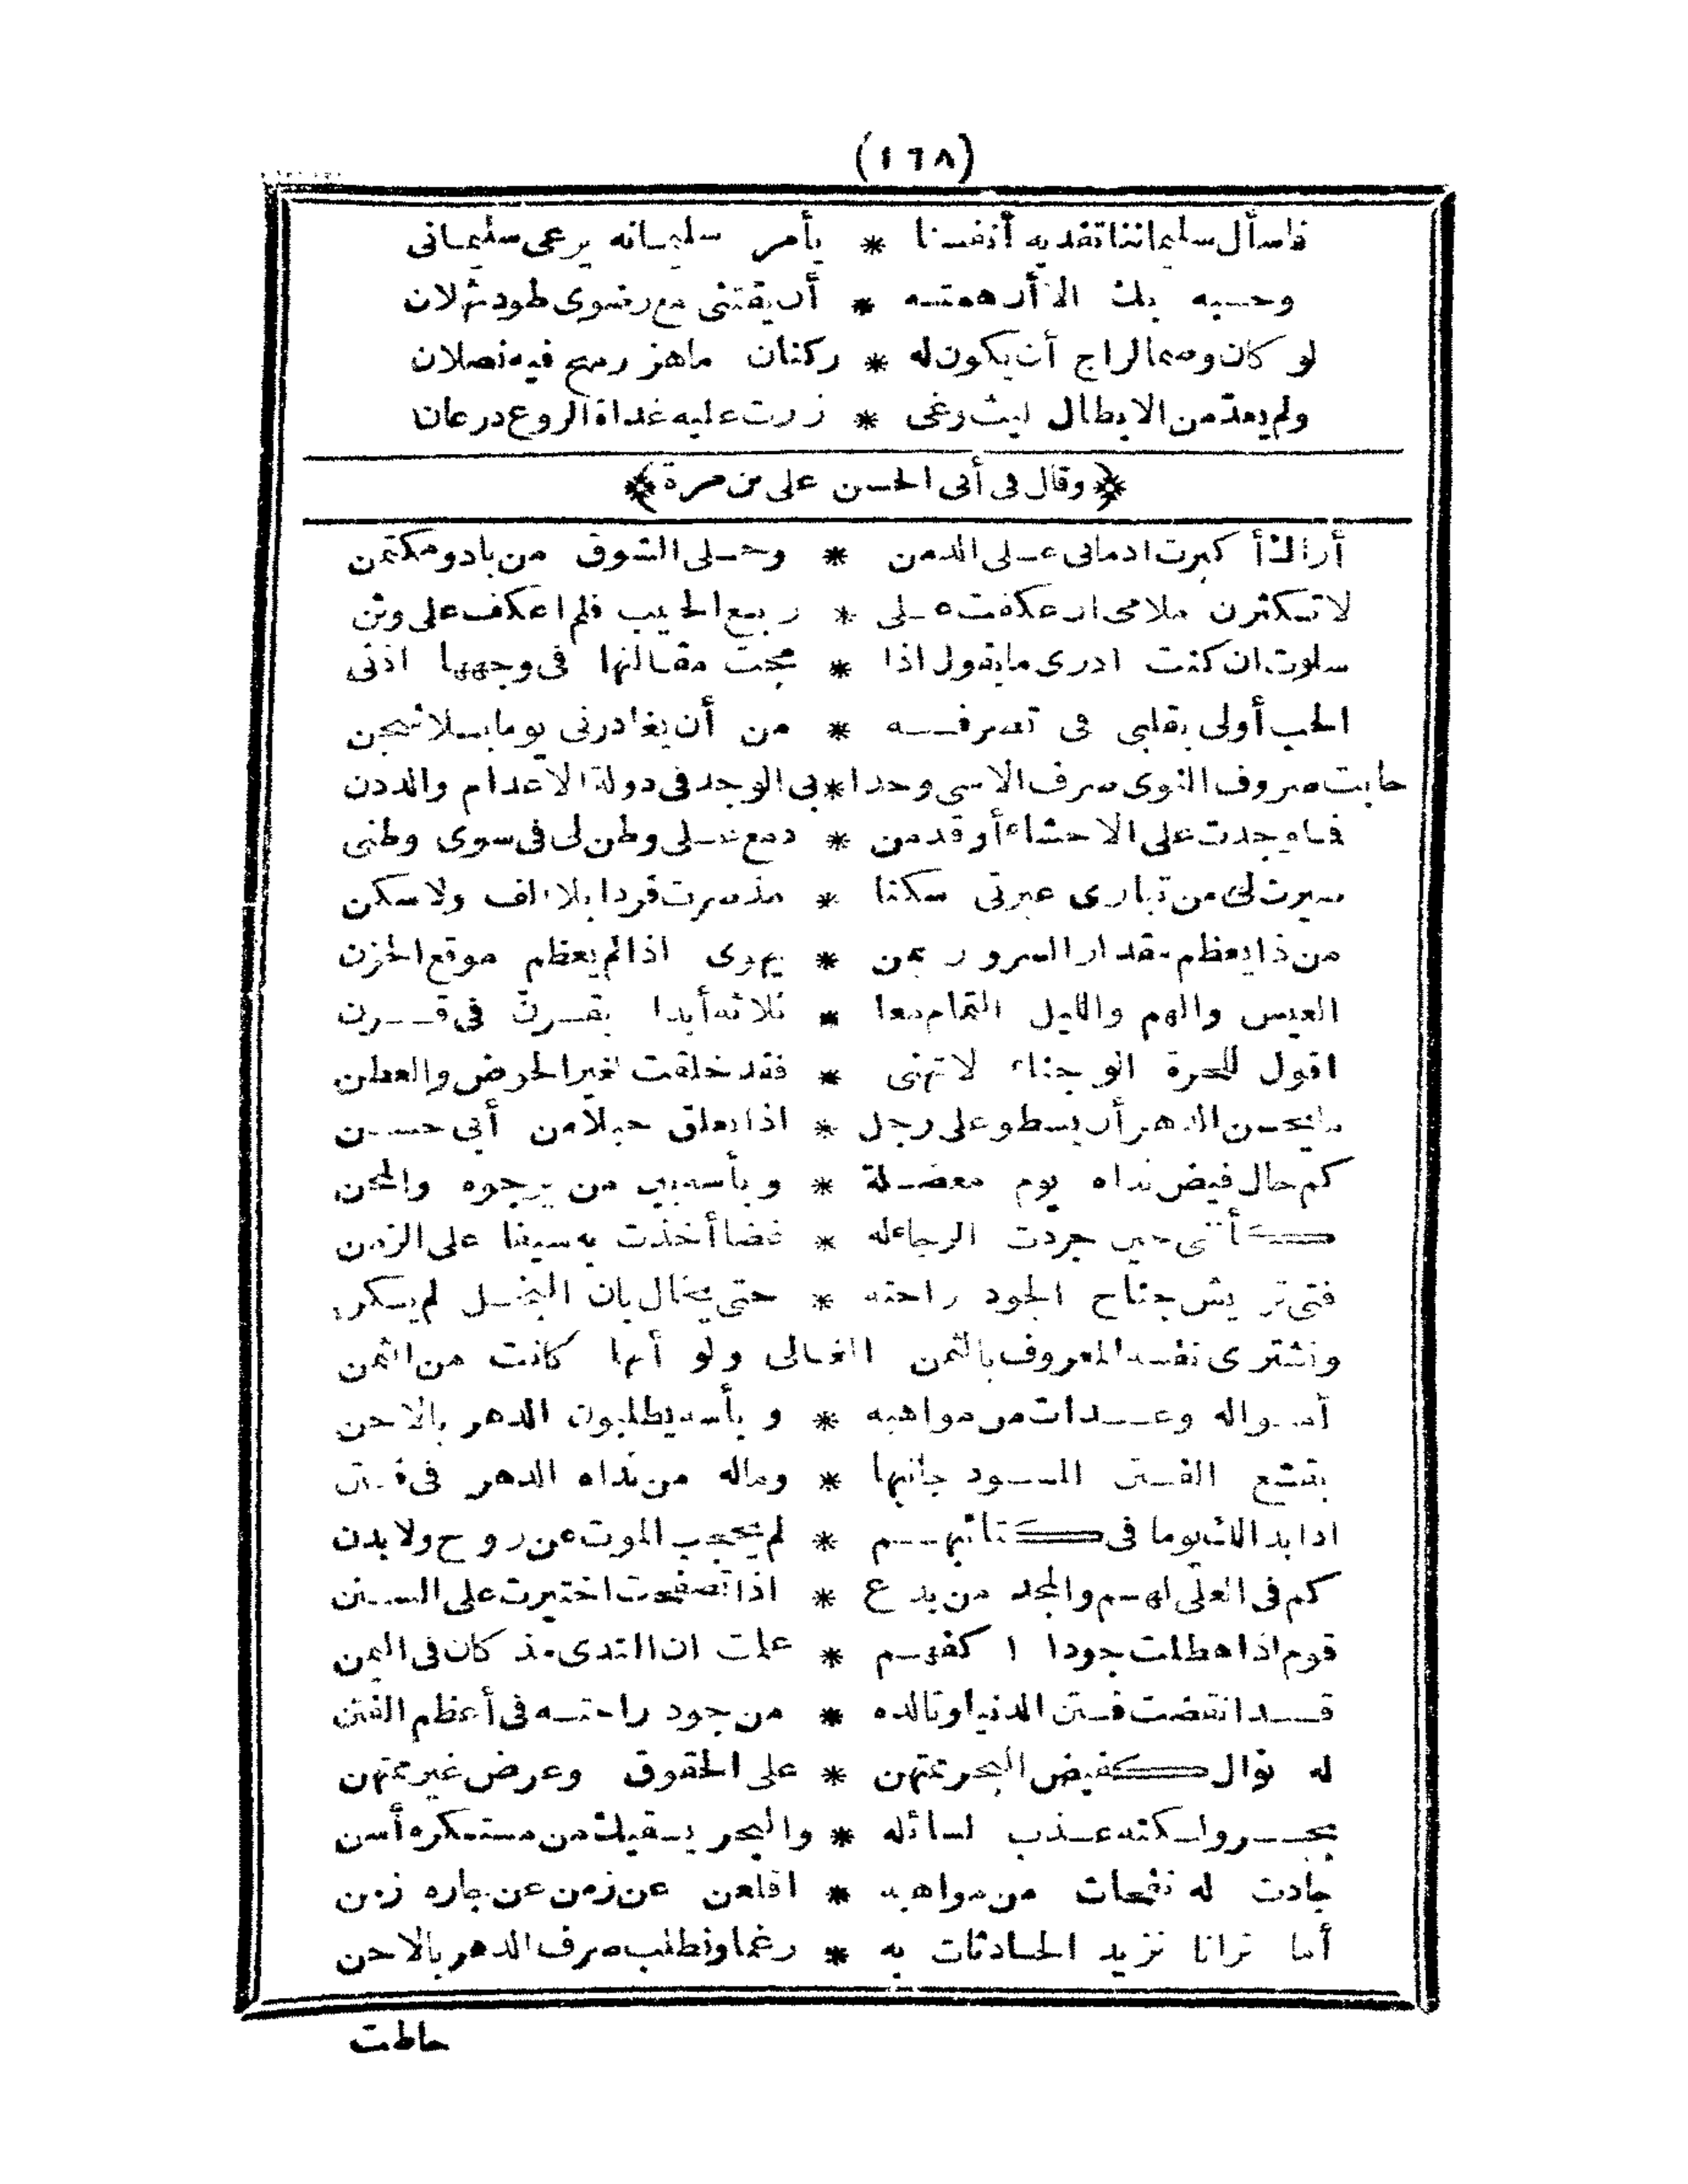 (١٦٨)
فاسأل سليماننا تفديه أنفسنا * يأمر سليمانه يرعى سليمانى
وحسبه بك الا أن همته * أن يقتنى مع رضوى طود ثهلان
لو كان وصما لراج أن يكون له * ركنان ماهز رمح فيه نصلان
ولم يعدّ من الابطال ليث وغى * زرت عليه غداة الروع درعان
﴿وقال فى أبى الحسن على بن مرة﴾
أراك أكبرت ادمانى على الدمن * وحملى الشوق من باد ومكتمن
لا تكثرن ملامى ان عكفت على * ربع الحبيب فلم اعكف على وثن
سلوت ان كنت ادرى ما يقول اذا * مجت مقالتها فى وجهها اذنى
الحب أولى بقلبى فى تصرفه * من أن يغادرنى يوما بلا شجن
حلبت صروف النوى صرف الاسى وحدا * بى الوجد فى دولة الاعدام والددن
فما وجدت على الاحشاء أوقد من * دمع على وطن لى فى سوى وطنى
صيرت لى من تبارى عبرتى سكنا * مذ صرت فردا بلا الف ولا سكن
من ذا يعظم مقدار السرور بمن * يهوى اذا لم يعظم موقع الحزن
العيس والهم والليل التمام معا * ثلاثة أبدا يقرنّ فى قرن
اقول للحرة الوجناء لا تهنى * فقد خلقت لغير الحوض والعطن
ما يحسن الدهر أن يسطو على رجل * اذا تعلق حبلا من أبى حسن
كم حال فيض نداه يوم معضلة * وبأسه بين من يرجوه والمحن
كأننى حين جردت الرجاء له * غضا أخذت به سيفا على الزمن
فتى تريش جناح الجود راحته * حتى يخال بان البخل لم يكن
وتشترى نفسه المعروف بالثمن الغالى ولو أنها كانت من الثمن
أمواله وعداة من مواهبه * وبأسه يطلبون الدهر بالاحن
يقشع الفتن المسود جانبها * وماله من نداه الدهر فى فتن
اذا بدا لك يوما فى كتائبهم * لم يحجب الموت عن روح ولا بدن
كم فى العلى لهم والمجد من بدع * اذا تصفحت اختيرت على السنن
قوم اذا هطلت جودا اكفهم * علمت ان الندى مذ كان فى اليمن
قد انقضت فتن الدنيا وتالده * من جود راحته فى أعظم الفتن
له نوال كفيض البحر ممتهن * على الحقوق وعرض غير ممتهن
بحر ولكنه عذب لسائله * والبحر يسقيك من مستكره أسن
جادت له نفحات من مواهبه * اقلعن عن زمن عن جاره زمن
أما ترانا نزيد الحادثات به * رغما ونطلب صرف الدهر بالاحن
حاطت